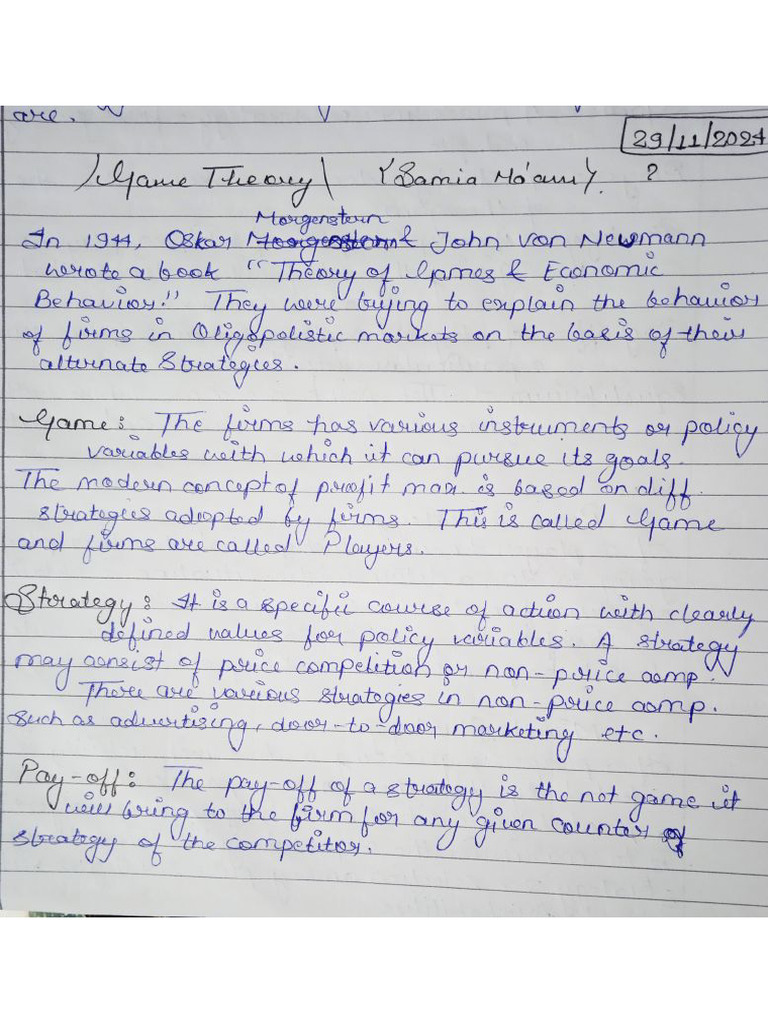 are.
29/11/2024
Game Theory (Samia Ma'am). ?
Morgenstern
In 1944, Oskar & John von Newmann
wrote a book "Theory of Games & Economic
Behavior." They were trying to explain the behavior
of firms in Oligopolistic markets on the basis of their
alternate Strategies.
Game: The firms has various instruments or policy
variables with which it can pursue its goals.
The modern concept of profit max. is based on diff.
strategies adopted by firms. This is called Game
and firms are called Players.
Strategy: It is a specific course of action with clearly
defined values for policy variables. A strategy
may consist of price competition or non-price comp.
There are various strategies in non-price comp.
such as advertising, door-to-door marketing etc.
Pay-off: The pay-off of a strategy is the not game it
will bring to the firm for any given counter
strategy of the competitor.